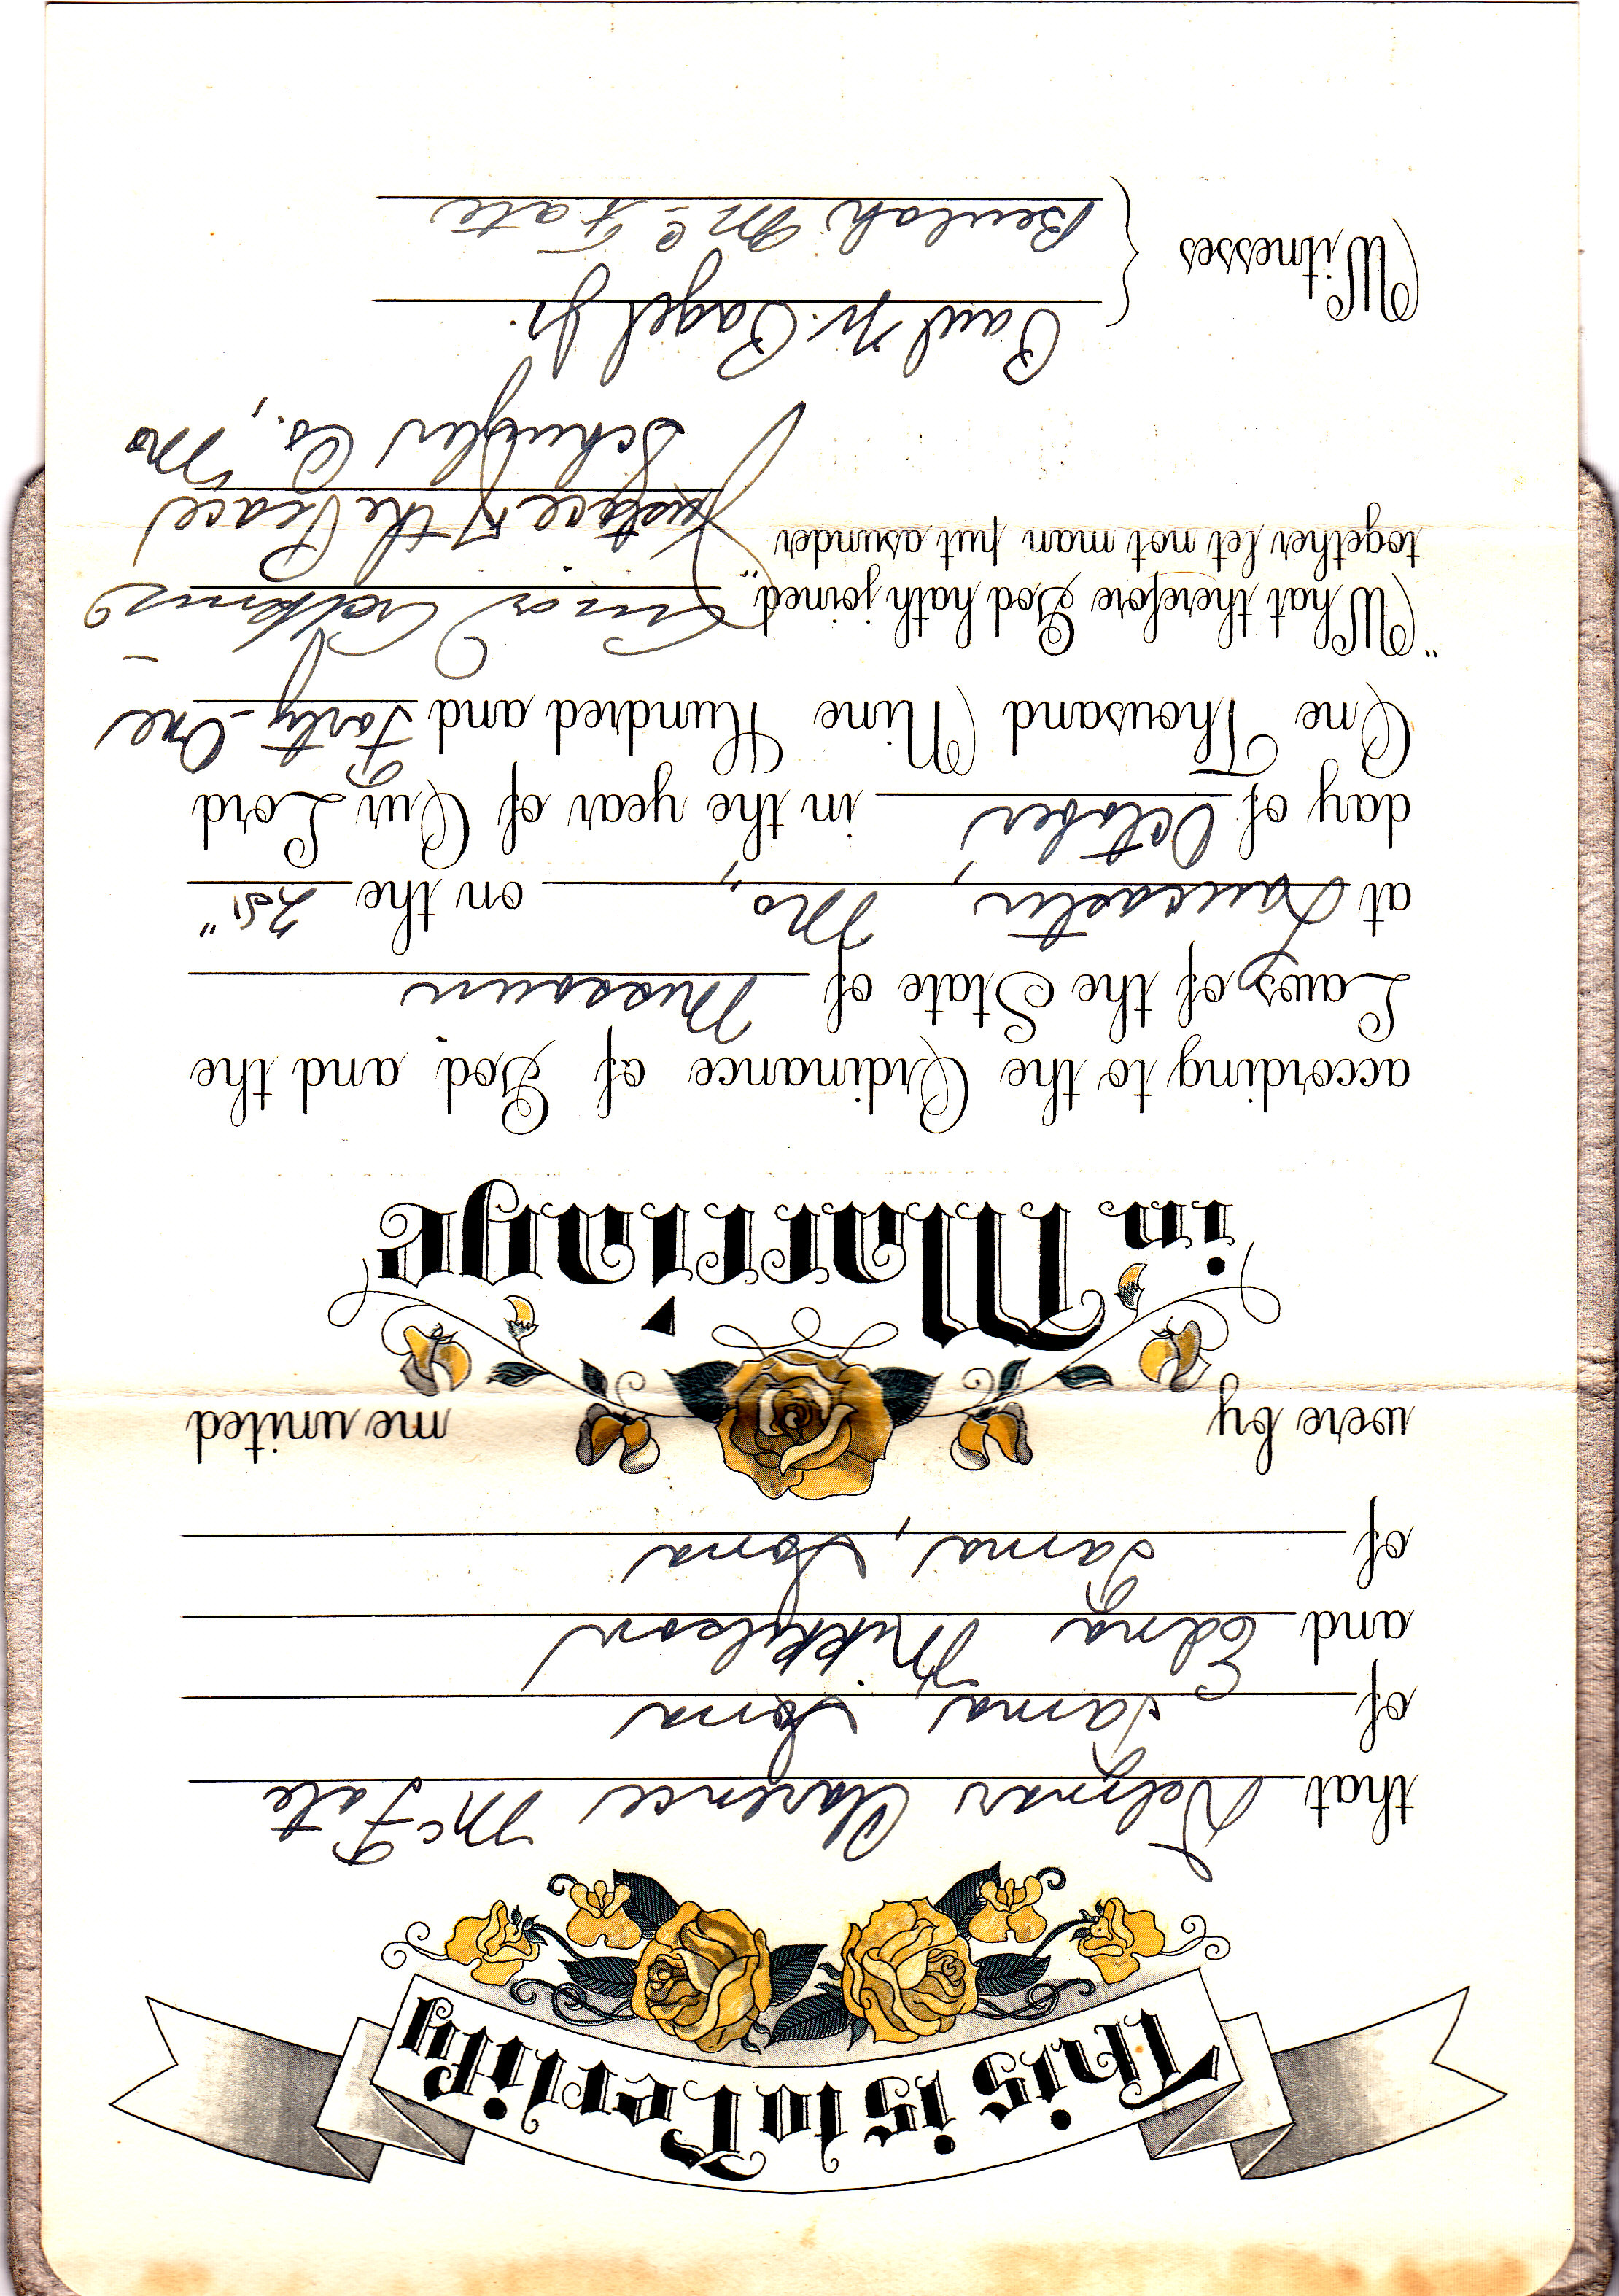 This is to Certify
that Delmar Clarence McFate
of Tama, Iowa
and Edna Mikkelson
of Tama, Iowa
were by me united
in Marriage
according to the Ordinance of God and the
Laws of the State of Missouri
at Lancaster, Mo, on the 25"
day of October in the year of Our Lord
One Thousand Nine Hundred and Forty-One
"What therefore God hath joined
together let not man put asunder"
Justice of the Peace
Schuyler Co., Mo
Witnesses
Paul W. Pagel Jr.
Beulah McFate